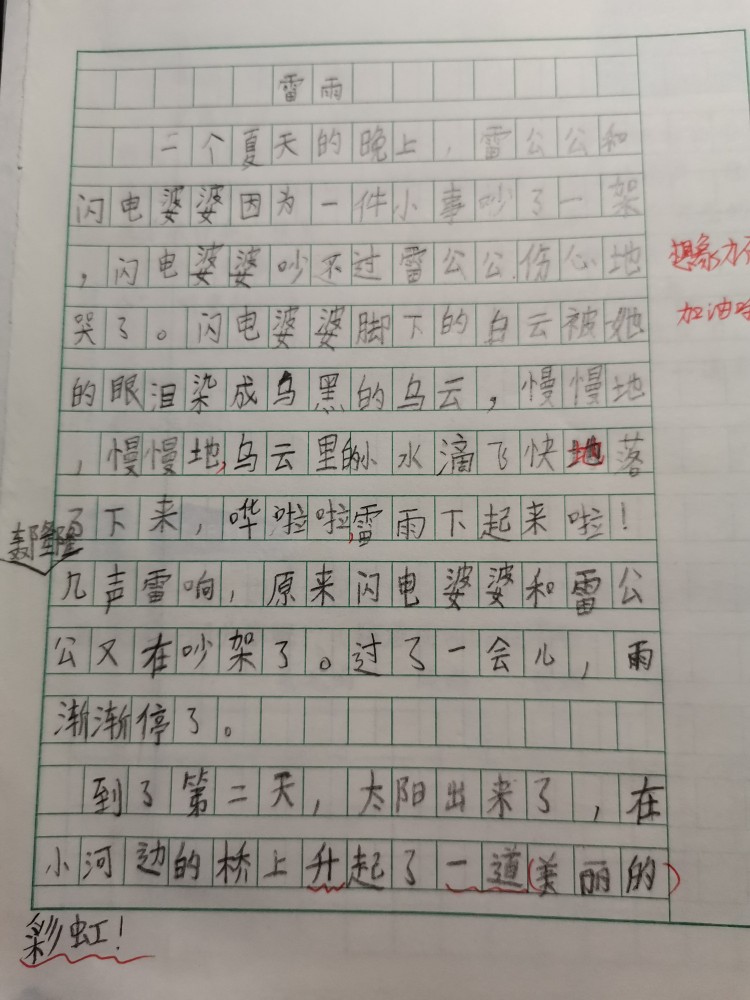 雷雨
二个夏天的晚上，雷公公和
闪电婆婆因为一件小事吵了一架
，闪电婆婆吵不过雷公公.伤心地
哭了。闪电婆婆脚下的白云被她
的眼泪染成乌黑的乌云，慢慢地
，慢慢地,乌云里的小水滴飞快地落
了下来，哗啦啦,雷雨下起来啦！
轰隆隆
几声雷响，原来闪电婆婆和雷公
公又在吵架了。过了一会儿，雨
渐渐停了。
到了第二天，太阳出来了，在
小河边的桥上升起了一道(美丽的)
彩虹！
想象力
加油